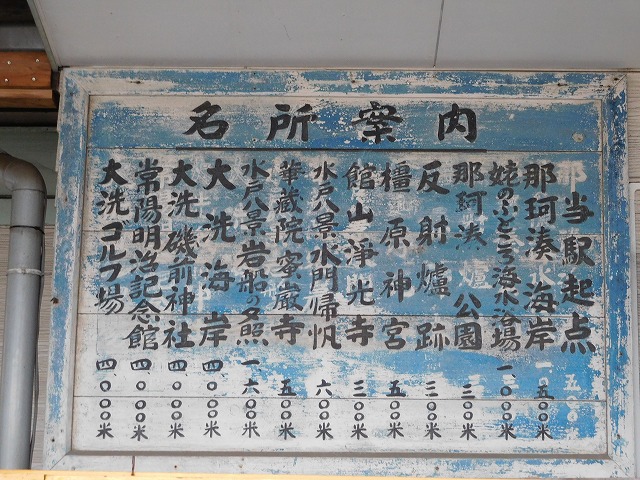 名所案内
当駅起点
那珂湊海岸 一、五〇〇米
姥のふところ海水浴場 一、〇〇〇米
那珂湊公園 三〇〇米
反射爐跡 三〇〇米
橿原神宮 五〇〇米
館山淨光寺 三〇〇米
水戸八景水門帰帆 六〇〇米
華蔵院蜜巌寺 五〇〇米
水戸八景岩船の夕照 一、六〇〇米
大洗海岸 四、〇〇〇米
大洗磯前神社 四、〇〇〇米
常陽明治記念館 四、〇〇〇米
大洗ゴルフ場 四、〇〇〇米